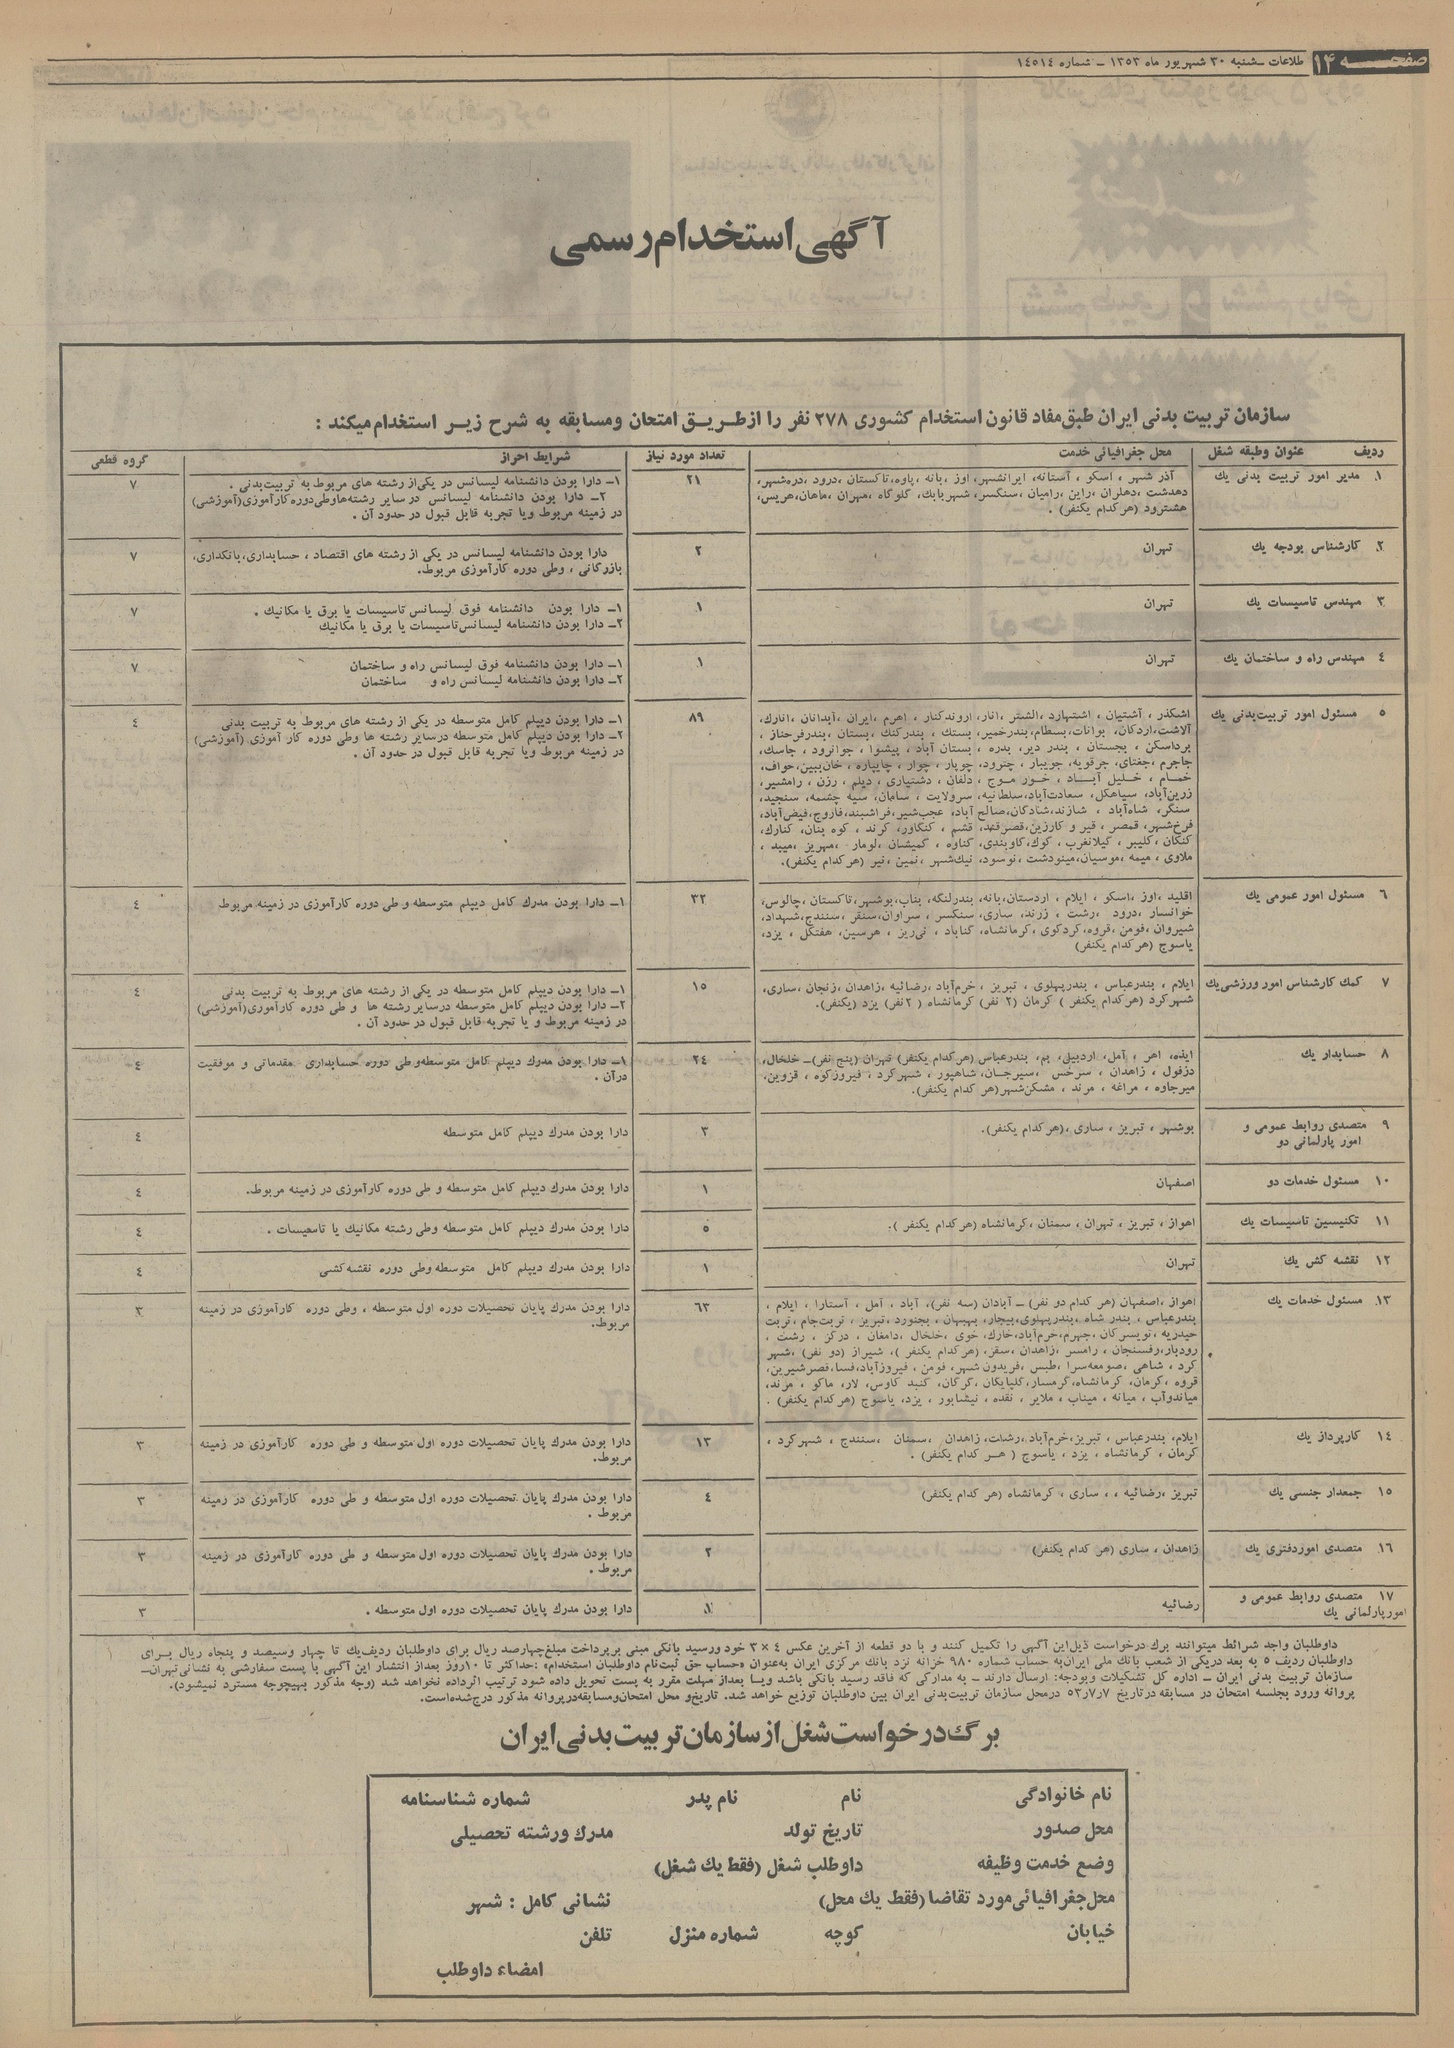 صفحه ۱۴
طلاعات ـ شنبه ۳۰ شهریور ماه ۱۳۵۳ ـ شماره ۱۴۵۱۴
آگهی استخدام رسمی
سازمان تربیت بدنی ایران طبق مفاد قانون استخدام کشوری ۲۷۸ نفر را از طریق امتحان و مسابقه به شرح زیر استخدام میکند :
ردیف عنوان و طبقه شغل محل جغرافیائی خدمت تعداد مورد نیاز شرایط احراز گروه قطعی
۱ـ مدیر امور تربیت بدنی یك
آذر شهر ، اسکو ، آستانه، ایرانشهر، اوز ، بانه ، پاوه، تاکستان ، درود، دره‌شهر،
دهدشت ،دهلران، راین، رامیان ،سنگسر، شهربابك، کلوگاه ،مهران ،ماهان، هریس،
هشترود (هر کدام یکنفر) .
۲۱
۱ـ دارا بودن دانشنامه لیسانس در یکی‌از رشته های مربوط به تربیت‌بدنی .
۲ـ دارا بودن دانشنامه لیسانس در سایر رشته‌ها وطی‌دوره کارآموزی(آموزشی)
در زمینه مربوط ویا تجربه قابل قبول در حدود آن .
۷
۲ـ کارشناس بودجه یك
تهران
۲
دارا بودن دانشنامه لیسانس در یکی از رشته های اقتصاد ، حسابداری، بانکداری،
بازرگانی ، وطی دوره کارآموزی مربوط.
۷
۳ مهندس تاسیسات یك
تهران
۱
۱ـ دارا بودن دانشنامه فوق لیسانس تاسیسات یا برق یا مکانیك .
۲ـ دارا بودن دانشنامه لیسانس تاسیسات یا برق یا مکانیك
۷
٤ مهندس راه و ساختمان یك
تهران
۱
۱ـ دارا بودن دانشنامه فوق لیسانس راه و ساختمان
۲ـ دارا بودن دانشنامه لیسانس راه و ساختمان
۷
۵ مسئول امور تربیت‌بدنی یك
اشکذر ، آشتیان ، اشتهارد، الشتر ، انار، اروندکنار ، اهرم ،ایران ،آبدانان ،انارك،
آلاشت،اردکان، بوانات، بسطام، بندرخمیر، بستك ، بندرکنك، بستان ، بندرفرحناز ،
برداسکن ، بجستان ، بندر دیر، بدره ، بستان آباد ، پیشوا ، جوانرود ، جاسك،
جاجرم ،جغتای، جرقویه، جویبار ، چترود، چوپار ، چوار ، چایپاره ، خان‌ببین، خواف،
خمام ، خلیل آباد ، خور موج ، دلفان ، دشتیاری ، دیلم ، رزن ، رامشیر،
زرین‌آباد، سیاهکل، سعادت‌آباد، سلطانیه، سرولایت ، سامان، سیه چشمه، سنجید،
سنگر، شاه‌آباد ، شازند، شادگان، صالح آباد، عجب‌شیر، فراشبند، فاروج، فیض‌آباد،
فرخ‌شهر، قمصر ، قیر و کارزین، قصرقند، قشم ، کنگاور، کرند ، کوه بنان، کنارك،
کنگان ،کلیبر ، گیلانغرب ، گوك، گاوبندی، گناوه ، گمیشان ،لومار ،مهریز ،میبد ،
ملاوی ، میمه ،موسیان، مینودشت ،نوسود، نیك‌شهر ، نمین ، نیر (هر کدام یکنفر).
۸۹
۱ـ دارا بودن دیپلم کامل متوسطه در یکی از رشته های مربوط به تربیت بدنی
۲ـ دارا بودن دیپلم کامل متوسطه درسایر رشته ها وطی دوره کار آموزی (آموزشی)
در زمینه مربوط ویا تجربه قابل قبول در حدود آن .
٤
۶ مسئول امور عمومی یك
اقلید، اوز ،اسکو ، ایلام ، اردستان، بانه، بندرلنگه، بناب، بوشهر، تاکستان ،چالوس،
خوانسار ،درود ،رشت ، زرند، ساری، سنگسر ، سراوان، سنقر ،سنندج، شهداد،
شیروان ،فومن ،قروه، کردکوی ،کرمانشاه، گناباد ، نی‌ریز ، هرسین، هفتگل ، یزد،
یاسوج (هر کدام یکنفر)
۳۲
۱ـ دارا بودن مدرك کامل دیپلم متوسطه و طی دوره کارآموزی در زمینه مربوط
٤
۷ کمك کارشناس امور ورزشی‌یك
ایلام ، بندرعباس ، بندرپهلوی ، تبریز ، خرم‌آباد، رضائیه، زاهدان، زنجان، ساری،
شهرکرد (هرکدام یکنفر ) کرمان (۲ نفر) کرمانشاه ( ۲نفر) یزد (یکنفر).
۱۵
۱ـ دارا بودن دیپلم کامل متوسطه در یکی از رشته های مربوط به تربیت بدنی
۲ـ دارا بودن دیپلم کامل متوسطه درسایر رشته ها و طی دوره کارآموری(آموزشی)
در زمینه مربوط و یا تجربه قابل قبول در حدود آن .
٤
۸ حسابدار یك
ایذه، اهر ، آمل، اردبیل، بم، بندرعباس (هرکدام یکنفر) تهران (پنج نفر)ـ خلخال،
دزفول ، زاهدان ، سرخس ،سیرجان، شاهپور ، شهرکرد ، فیروزکوه ، قزوین،
میرجاوه ، مراغه ، مرند ، مشکن‌شهر(هر کدام یکنفر).
۲٤
۱ـ دارا بودن مدرك دیپلم کامل متوسطه‌وطی دوره حسابداری مقدماتی و موفقیت
درآن .
٤
۹ متصدی روابط عمومی و
امور پارلمانی دو
بوشهر ، تبریز ، ساری ،(هرکدام یکنفر).
۳
دارا بودن مدرك دیپلم کامل متوسطه
٤
۱۰ مسئول خدمات دو
اصفهان
۱
دارا بودن مدرك دیپلم کامل متوسطه و طی دوره کارآموزی در زمینه مربوط.
٤
۱۱ تکنیسین تاسیسات یك
اهواز ، تبریز ، تهران ، سمنان ،کرمانشاه (هرکدام یکنفر ).
۵
دارا بودن مدرك دیپلم کامل متوسطه وطی رشته مکانیك یا تاسیسات .
٤
۱۲ نقشه کش یك
تهران
۱
دارا بودن مدرك دیپلم کامل متوسطه وطی دوره نقشه‌کشی
٤
۱۳ـ مسئول خدمات یك
اهواز ،اصفهان (هر کدام دو نفر) ـ آبادان (سه نفر)، آباد ، آمل ، آستارا ، ایلام ،
بندرعباس ، بندر شاه ،بندرپهلوی، بیجار، بهبهان ، بجنورد، تبریز ، تربت‌جام، تربت
حیدریه ،تویسرکان، جهرم، خرم‌آباد، خارك، خوی ، خلخال، دامغان ، درگز ، رشت ،
رودبار، رفسنجان ، رامسر، زاهدان، سقز، (هر کدام یکنفر )، شیراز (دو نفر) ،شهر
کرد ، شاهی ،صومعه‌سرا ، طبس ، فریدون شهر، فومن ، فیروزآباد، فسا، قصرشیرین،
قروه ،کرمان، کرمانشاه، گرمسار، گلپایگان ،گرگان، گنبد کاوس، لار، ماکو ، مرند،
میاندوآب ، میانه ، میناب ، ملایر ، نقده ، نیشابور ، یزد، یاسوج (هر کدام یکنفر) .
۶۳
دارا بودن مدرك پایان تحصیلات دوره اول متوسطه ، وطی دوره کارآموزی در زمینه
مربوط.
۳
۱٤ کارپرداز یك
ایلام، بندرعباس ، تبریز، خرم‌آباد، رشت، زاهدان ، سمنان ،سنندج ، شهرکرد ،
کرمان ، کرمانشاه ، یزد ، یاسوج ( هر کدام یکنفر) .
۱۳
دارا بودن مدرك پایان تحصیلات دوره اول متوسطه و طی دوره کارآموزی در زمینه
مربوط.
۳
۱۵ جمعدار جنسی یك
تبریز ،رضائیه ، ، ساری ، کرمانشاه (هر کدام یکنفر)
٤
دارا بودن مدرك پایان تحصیلات دوره اول متوسطه و طی دوره کارآموزی در زمینه
مربوط .
۳
۱۶ـ متصدی اموردفتری یك
زاهدان ، ساری (هر کدام یکنفر)
۲
دارا بودن مدرك پایان تحصیلات دوره اول متوسطه و طی دوره کارآموزی در زمینه
مربوط .
۳
۱۷ متصدی روابط عمومی و
امورپارلمانی یك
رضائیه
۱
دارا بودن مدرك پایان تحصیلات دوره اول متوسطه .
۳
داوطلبان واجد شرائط میتوانند برك درخواست ذیل‌این آگهی را تکمیل کنند و با دو قطعه از آخرین عکس ٤ × ۳ خود ورسید بانکی مبنی بر پرداخت مبلغ‌چهارصد ریال برای داوطلبان ردیف‌یك تا چهار وسیصد و پنجاه ریال برای
داوطلبان ردیف ۵ به بعد دریکی از شعب بانك ملی ایران به حساب شماره ۹۸۰ خزانه نزد بانك مرکزی ایران به‌عنوان «حساب حق ثبت‌نام داوطلبان استخدام» :حداکثر تا ۱۰روز بعداز انتشار این آگهی با پست سفارشی به نشانی تهران ـ
سازمان تربیت بدنی ایران ـ اداره کل تشکیلات وبودجه: ارسال دارند ـ به مدارکی که فاقد رسید بانکی باشد ویا بعداز مهلت مقرر به پست تحویل داده شود ترتیب اثرداده نخواهد شد (وجه مذکور بهیچوجه مسترد نمیشود).
پروانه ورود بجلسه امتحان در مسابقه درتاریخ ۵۳/۷/۷ درمحل سازمان تربیت‌بدنی ایران بین داوطلبان توزیع خواهد شد. تاریخ‌و محل امتحان‌ومسابقه‌درپروانه مذکور درج‌شده‌است.
برگ درخواست شغل از سازمان تربیت بدنی ایران
نام خانوادگی نام نام پدر شماره شناسنامه
محل صدور تاریخ تولد مدرك ورشته تحصیلی
وضع خدمت وظیفه داوطلب شغل (فقط یك شغل)
محل جغرافیائی مورد تقاضا (فقط یك محل) نشانی کامل : شهر
خیابان کوچه شماره منزل تلفن
امضاء داوطلب